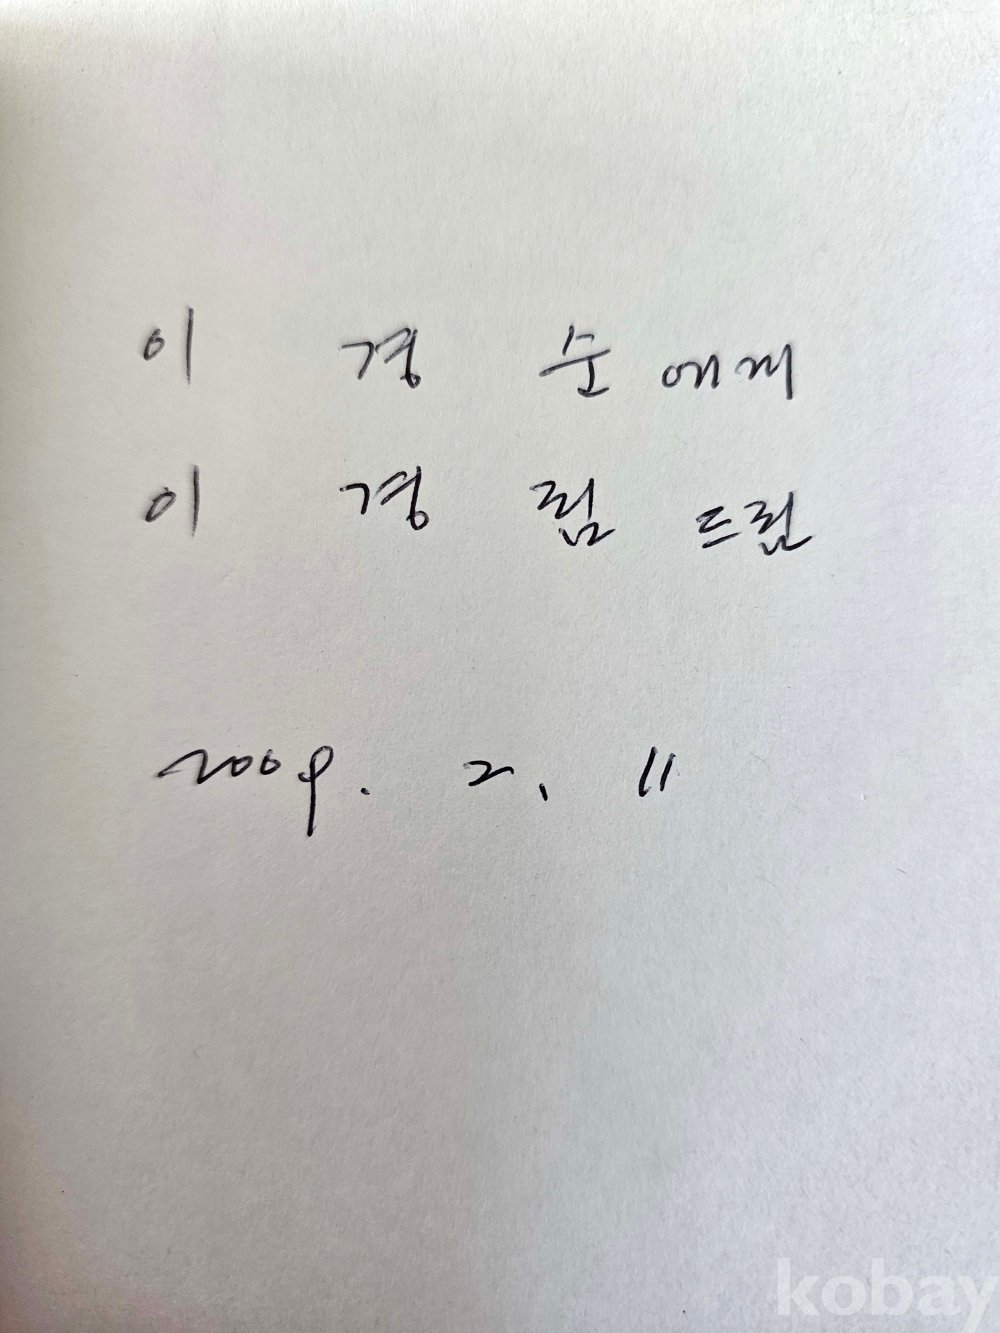 이 경 순에게
이 경 림 드림
2009. 2. 11
kobay